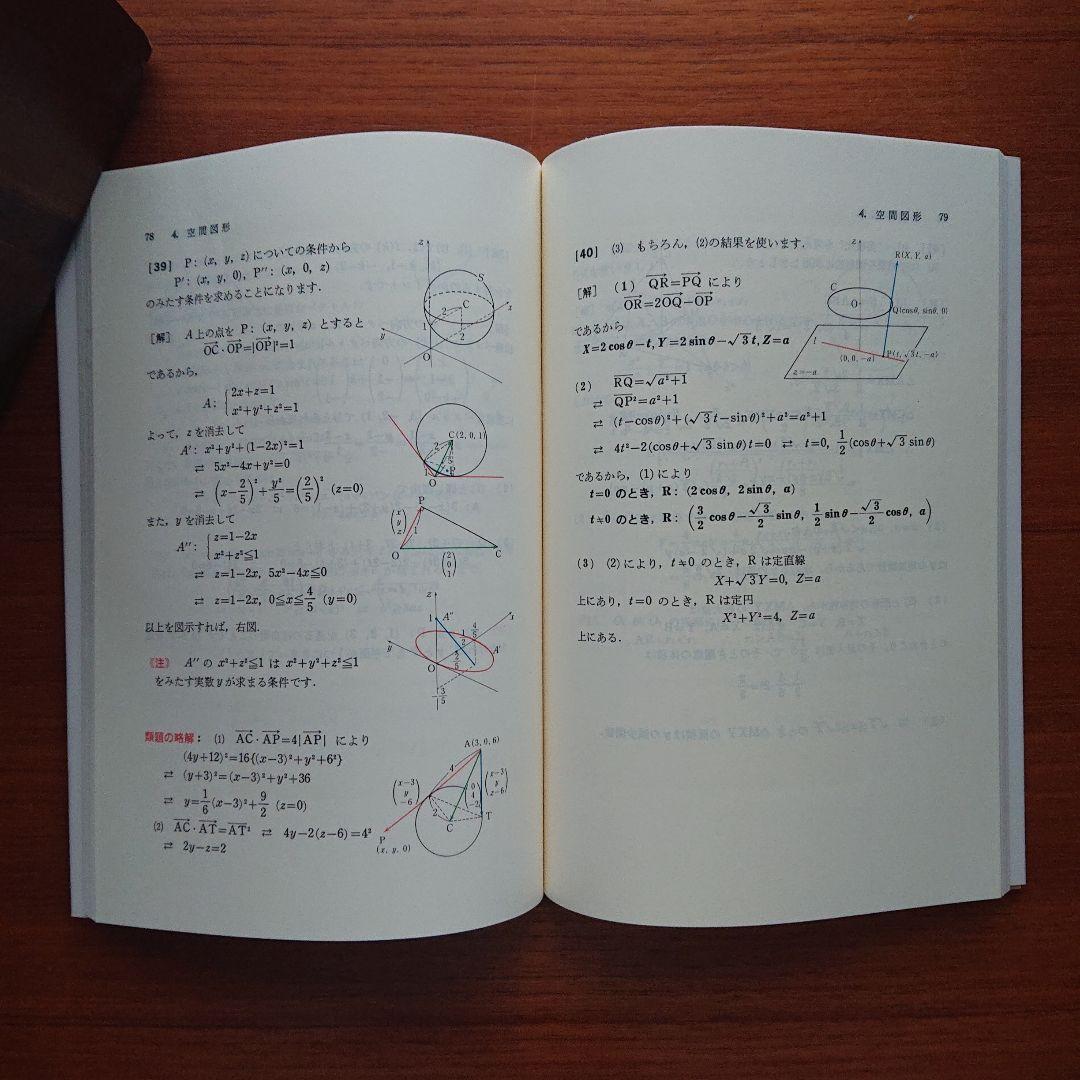 78 4. 空間図形
[39] P:(x, y, z)についての条件から
P′:(x, y, 0), P″:(x, 0, z)
のみたす条件を求めることになります.
[解] A上の点を P:(x, y, z) とすると
OC・OP=|OP|²=1
であるから,
A: {2x+z=1
x²+y²+z²=1
よって, zを消去して
A′: x²+y²+(1−2x)²=1
⇄ 5x²−4x+y²=0
⇄ (x−2/5)²+y²/5=(2/5)² (z=0)
また, yを消去して
A″: {z=1−2x
x²+z²≦1
⇄ z=1−2x, 5x²−4x≦0
⇄ z=1−2x, 0≦x≦4/5 (y=0)
以上を図示すれば, 右図.
《注》 A″の x²+z²≦1 は x²+y²+z²≦1
をみたす実数yが求まる条件です.
類題の略解: (1) AC・AP=4|AP| により
(4y+12)²=16{(x−3)²+y²+6²}
⇄ (y+3)²=(x−3)²+y²+36
⇄ y=1/6(x−3)²+9/2 (z=0)
(2) AC・AT=AT² ⇄ 4y−2(z−6)=4²
⇄ 2y−z=2
z
S
C
2
1
x
y
O
2
C(2, 0, 1)
2
1
P
O
P
(x y z)
1
O
C
(2 0 1)
z
1
A″
4/5
x
1/2
y
2/5
A′
O
−3/5
A(3, 0, 6)
4
(x−3 y −6)
(0 4 −2)
(x−3 y z−6)
2
C
T
P
(x, y, 0)
4. 空間図形 79
[40] (3) もちろん, (2)の結果を使います.
[解] (1) QR=PQ により
OR=2OQ−OP
であるから
X=2cosθ−t, Y=2sinθ−√3t, Z=a
(2) RQ=√a²+1
⇄ QP²=a²+1
⇄ (t−cosθ)²+(√3t−sinθ)²+a²=a²+1
⇄ 4t²−2(cosθ+√3sinθ)t=0 ⇄ t=0, 1/2(cosθ+√3sinθ)
であるから, (1)により
t=0 のとき, R:(2cosθ, 2sinθ, a)
t≠0 のとき, R:(3/2cosθ−√3/2sinθ, 1/2sinθ−√3/2cosθ, a)
(3) (2)により, t≠0 のとき, Rは定直線
X+√3Y=0, Z=a
上にあり, t=0 のとき, Rは定円
X²+Y²=4, Z=a
上にある.
z
R(X, Y, a)
C
O
Q(cosθ, sinθ, 0)
l
(0, 0, −a)
P(t, √3t, −a)
z=−a